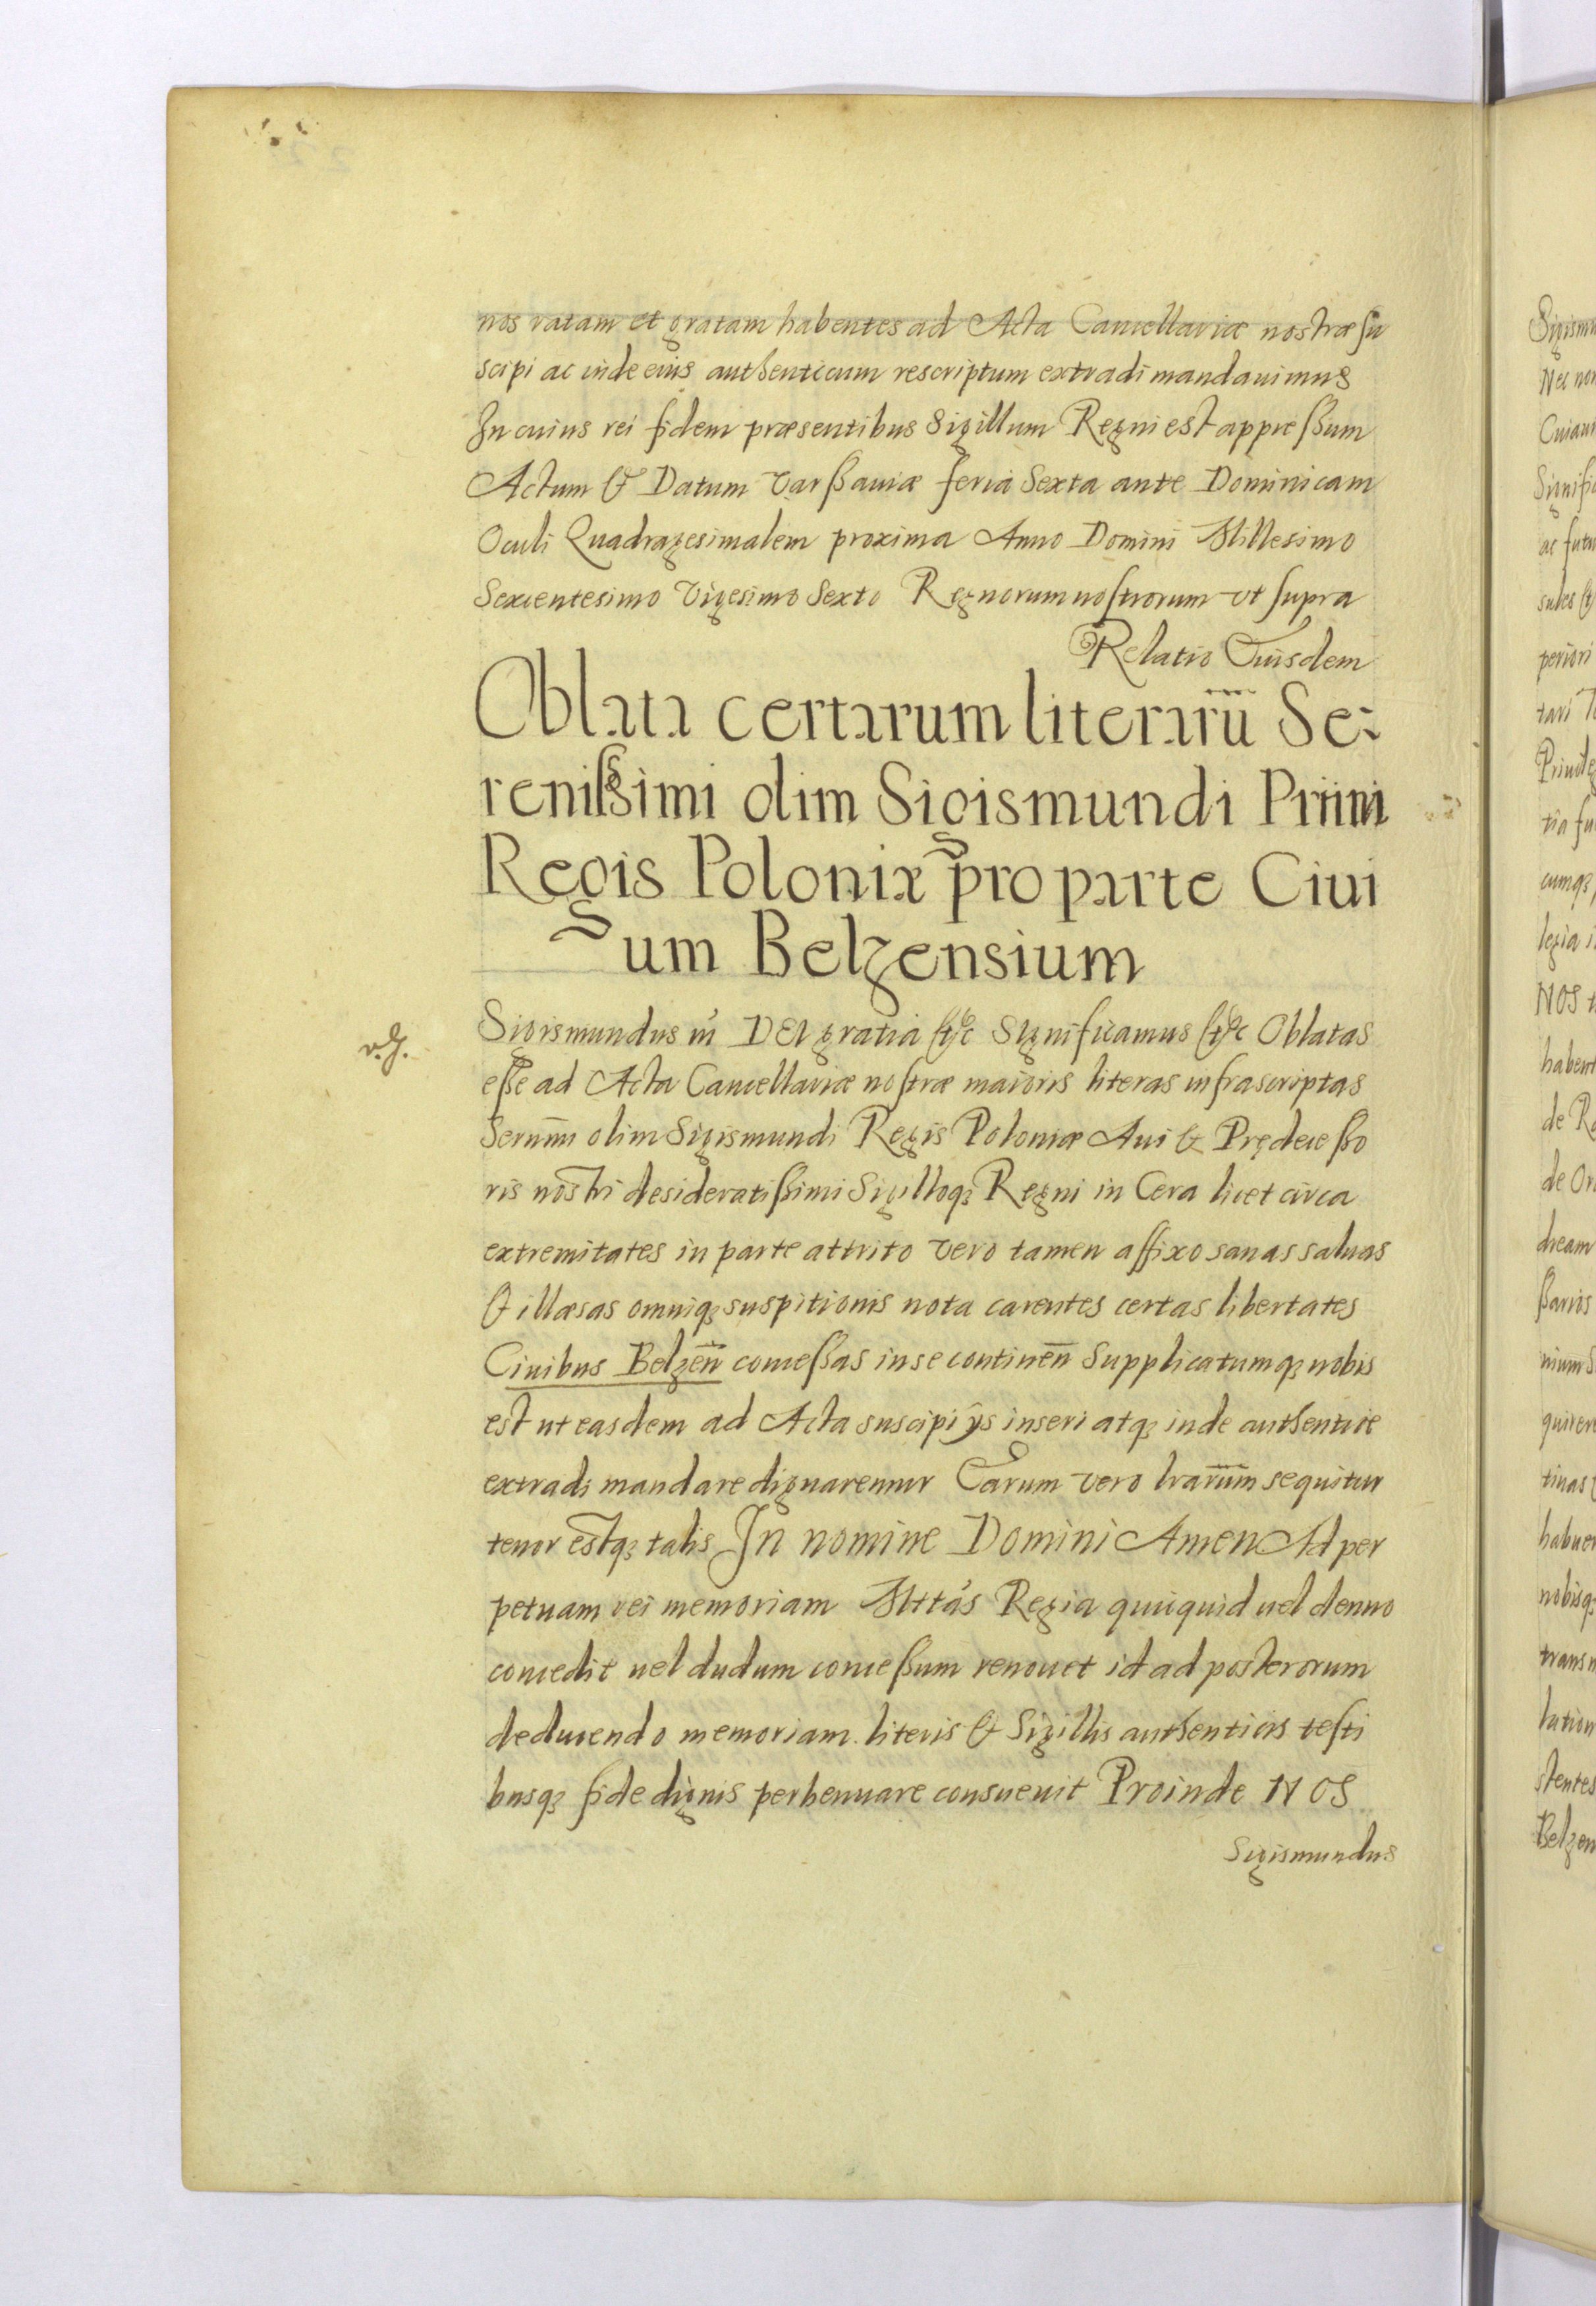 nos ratam et gratam habentes ad Acta Cancellariæ nostræ su
scipi ac inde eius authenticum rescriptum extradi mandauimus
In cuius rei fidem præsentibus Sigillum Regni est appressum
Actum & Datum Varssauiæ feria Sexta ante Dominicam
Oculi Quadragesimalem proxima Anno Domini Millesimo
Sexcentesimo Vigesimo Sexto Regnorum nostrorum vt supra
Relatio Eiusdem
Oblata certarum literarũ Se-
renissimi olim Sigismundi Primi
Regis Poloniæ pro parte Ciui
um Belzensium
v. g.
Sigismundus III DEI gratia &c Significamus &c Oblatas
esse ad Acta Cancellariæ nostræ maioris literas infrascriptas
Sernmi olim Sigismundi Regis Poloniæ Aui & Prędecesso
ris nostri desideratissimi Sigilloqꝫ Regni in Cera licet circa
extremitates in parte attrito vero tamen affixo sanas saluas
& illæsas omniqꝫ suspitionis nota carentes certas libertates
Ciuibus Belzen̄ concessas in se continen̄ Supplicatumqꝫ nobis
est ut easdem ad Acta suscipi ijs inseri atqꝫ inde authentice
extradi mandare dignaremur Earum vero lrarum sequitur
tenor estqꝫ talis In nomine Domini Amen Ad per
petuam rei memoriam Mttas Regia quicquid uel denuo
concedit uel dudum concessum renouet id ad posterorum
deducendo memoriam literis & Sigillis authenticis testi
busqꝫ fide dignis perhennare consueuit Proinde NOS
Sigismundus